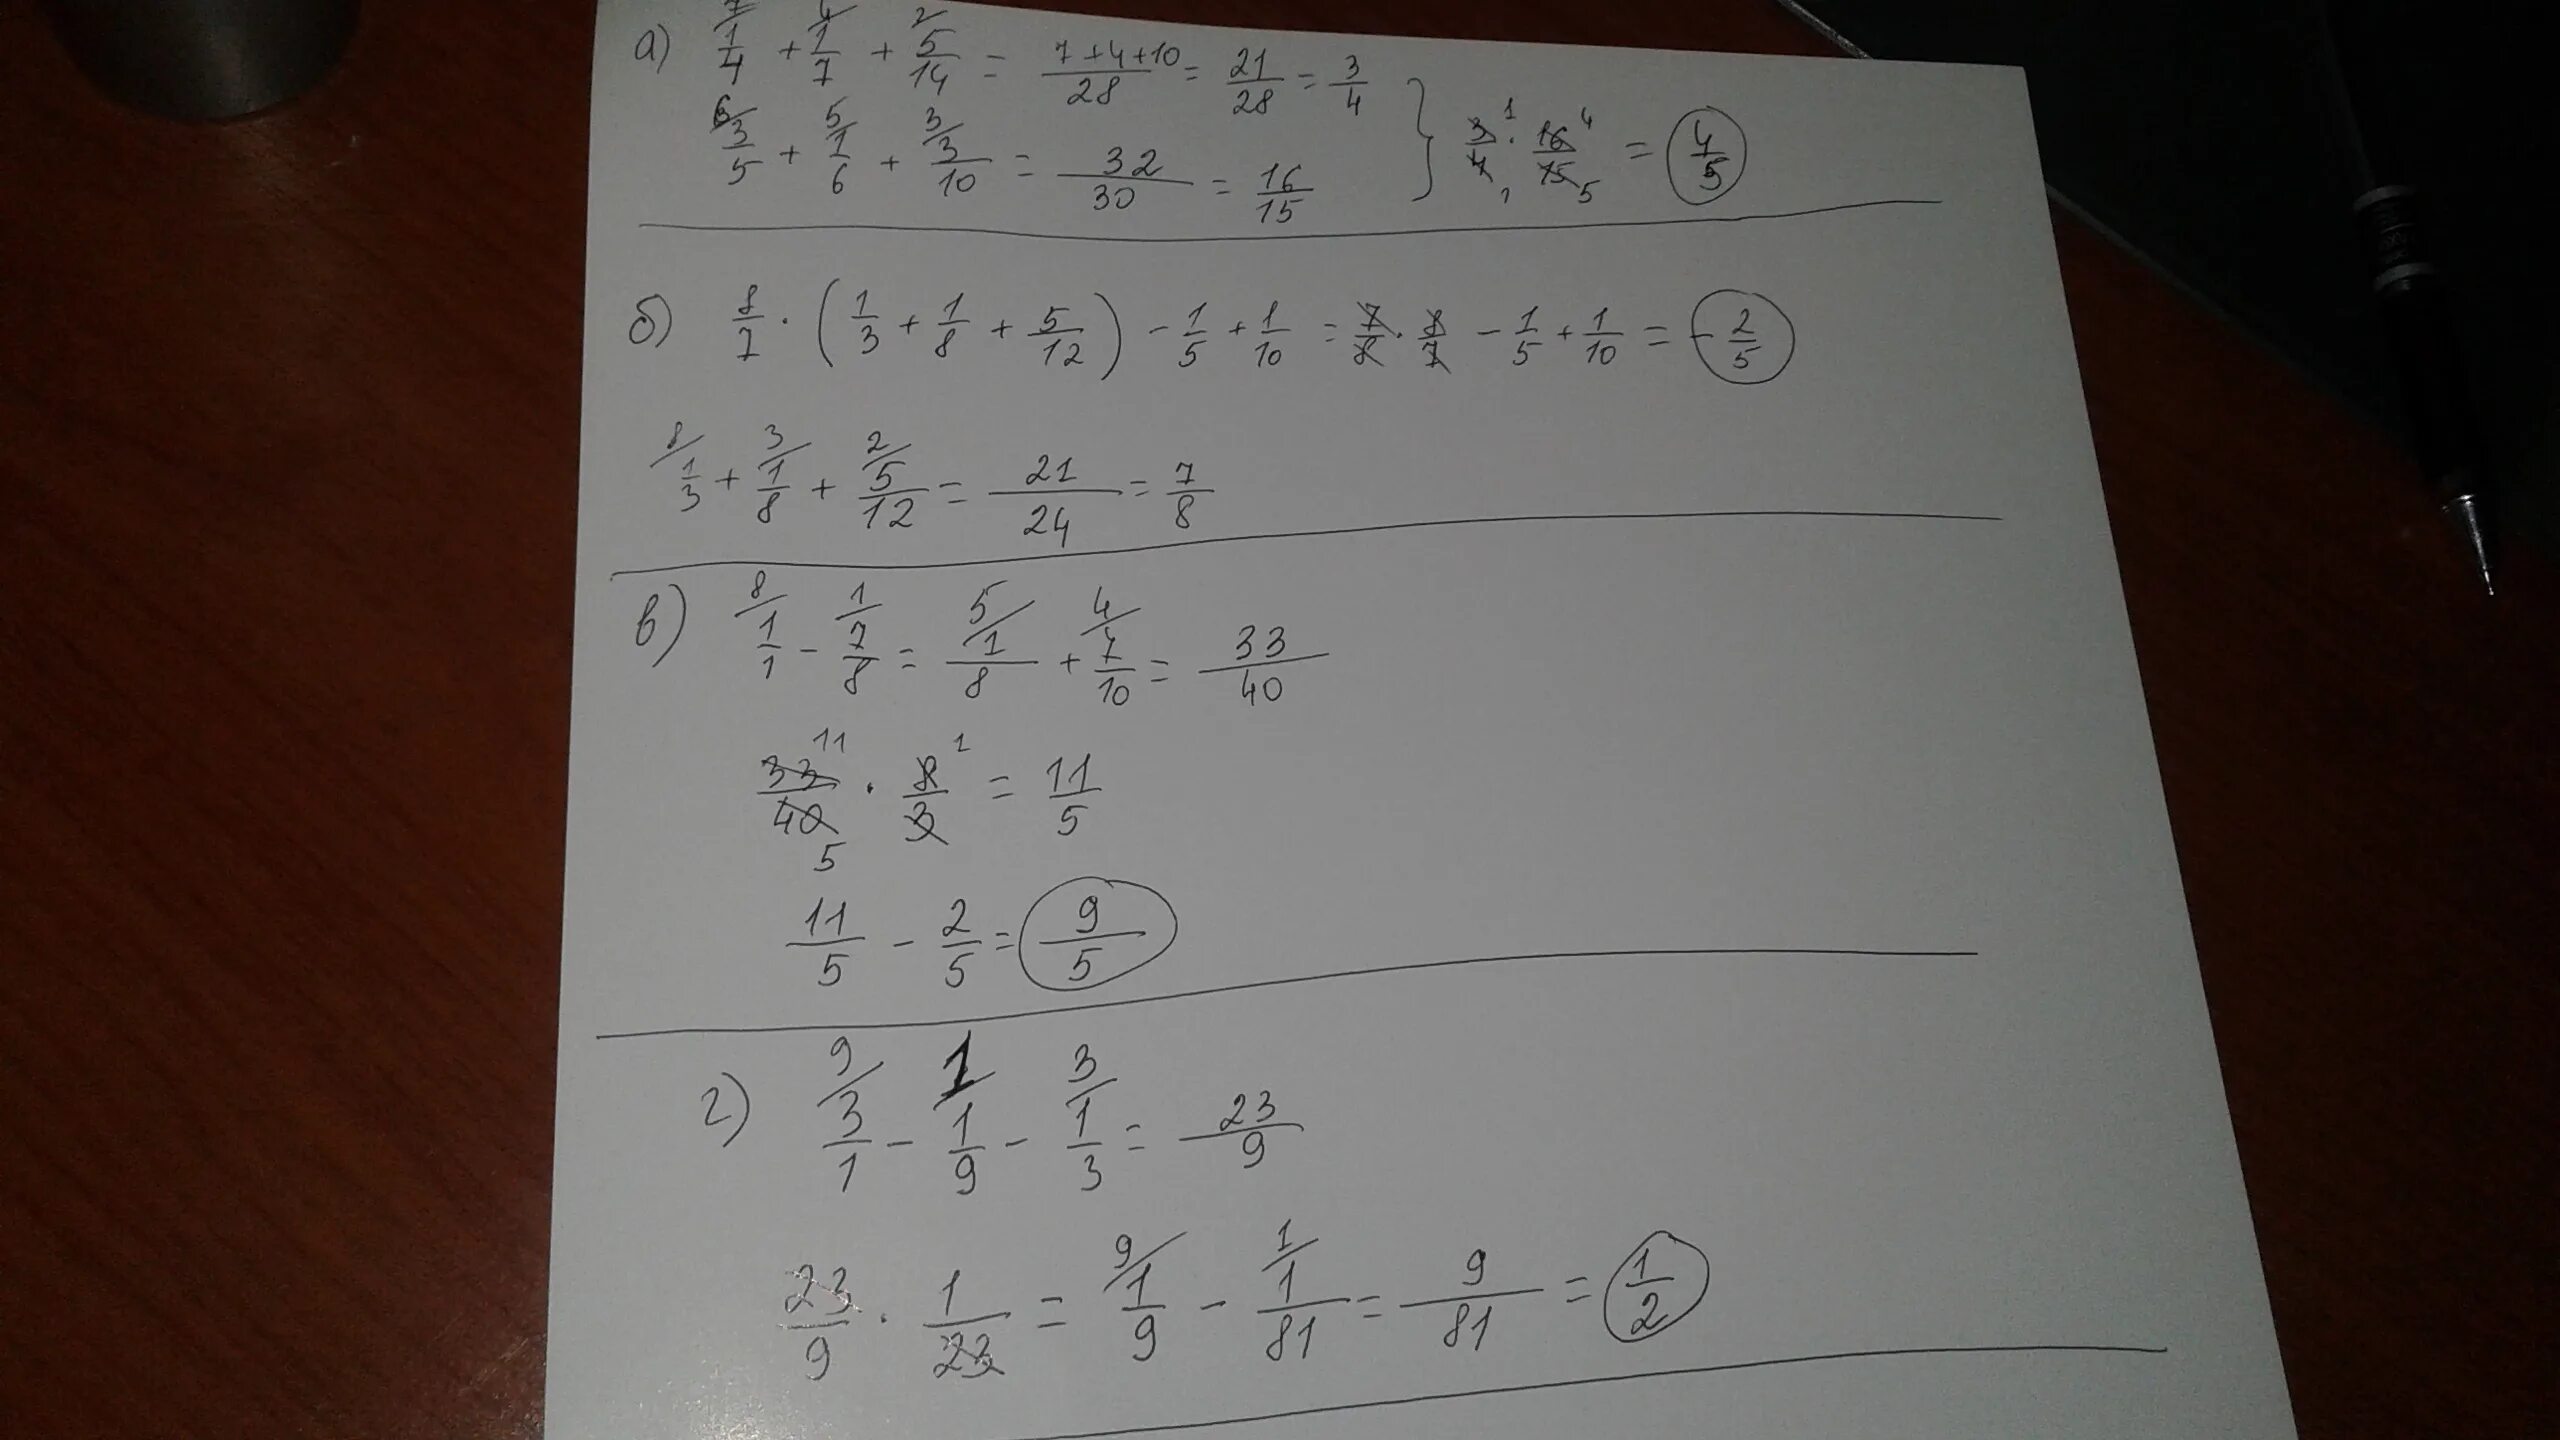 а) 7/ 1/4 + 4/ 1/7 + 2/ 5/14 = (7+4+10)/28 = 21/28 = 3/4
6/ 3/5 + 5/ 1/6 + 3/ 3/10 = 32/30 = 16/15 } 3/4 1 1 · 16/15 4 5 = 4/5
б) 8/7 · (1/3 + 1/8 + 5/12) - 1/5 + 1/10 = 7/8 · 8/7 - 1/5 + 1/10 = - 2/5
8/ 1/3 + 3/ 1/8 + 2/ 5/12 = 21/24 = 7/8
в) 8/ 1/1 - 1/ 7/8 = 5/ 1/8 + 4/ 7/10 = 33/40
33/40 11 5 · 8/3 1 = 11/5
11/5 - 2/5 = 9/5
г) 9/ 3/1 - 1/ 1/9 - 3/ 1/3 = 23/9
23/9 · 1/23 = 9/ 1/9 - 1/ 1/81 = 9/81 = 1/2